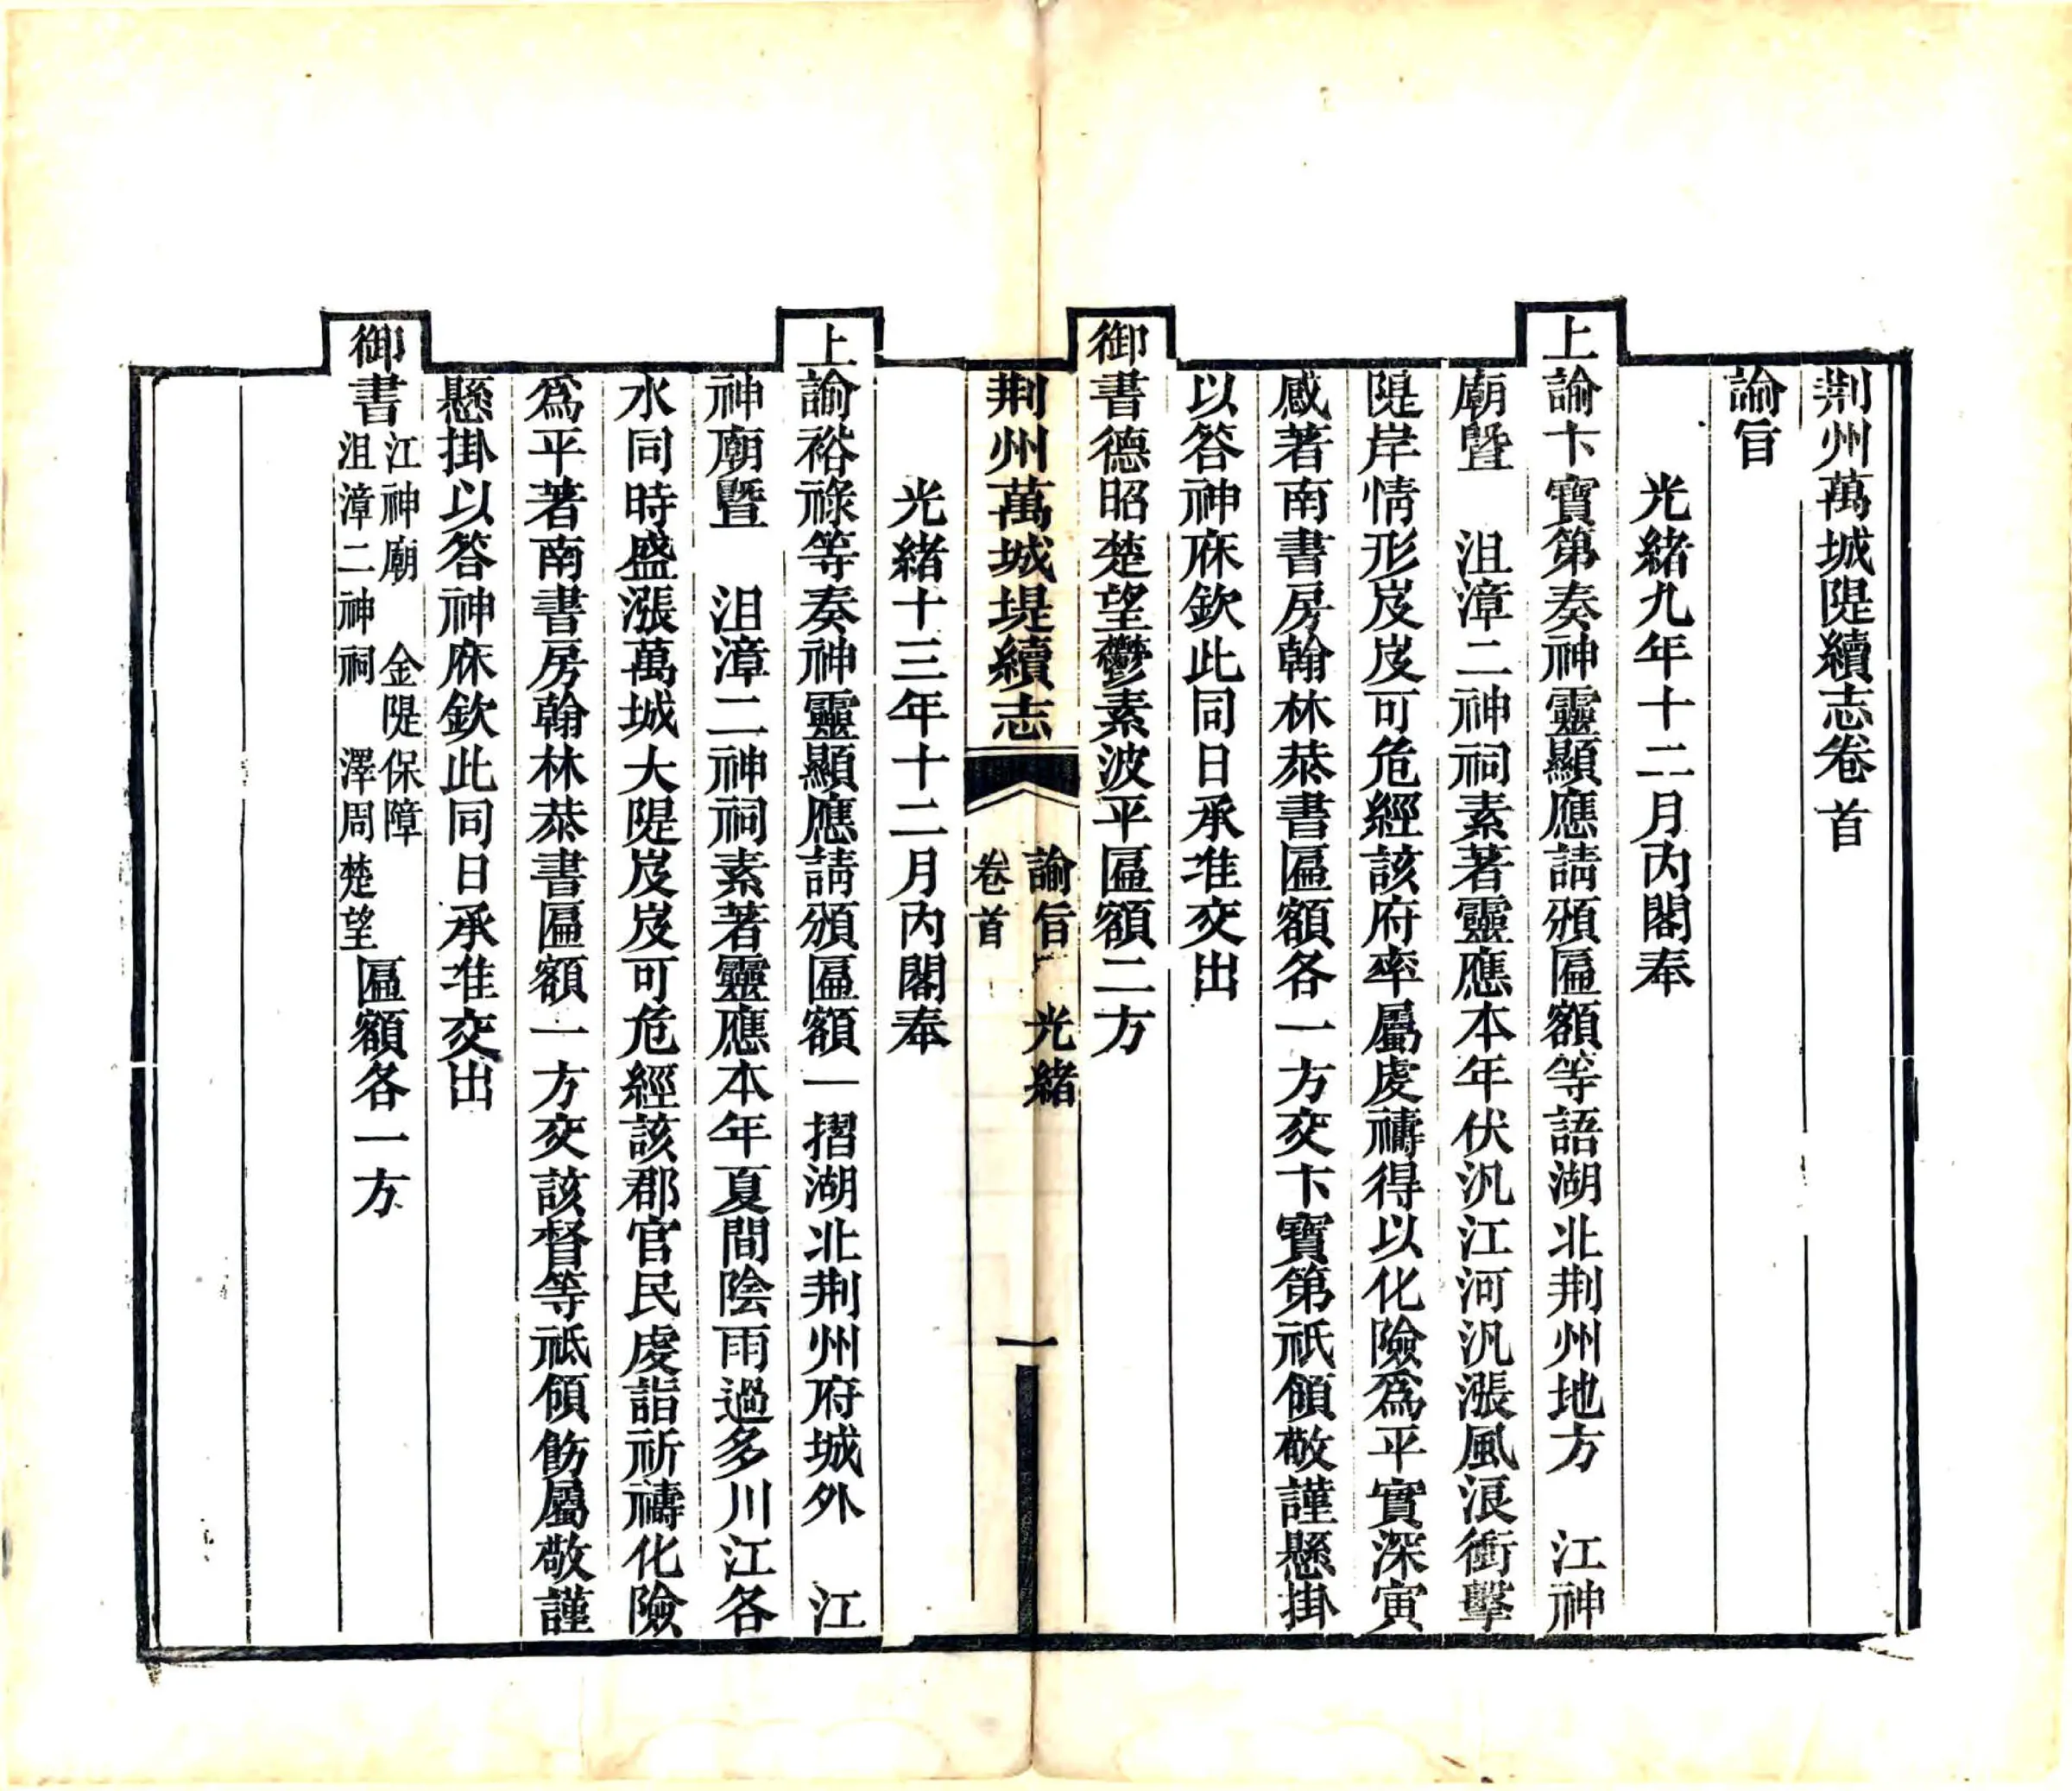 荆州萬城隄續志卷首
諭旨
光緒九年十二月內閣奉
上諭卞寶第奏神靈顯應請頒匾額等語湖北荆州地方　江神
廟暨　沮漳二神祠素著靈應本年伏汛江河汛漲風浪衝擊
隄岸情形岌岌可危經該府率屬虔禱得以化險爲平實深寅
感著南書房翰林恭書匾額各一方交卞寶第祇領敬謹懸掛
以答神庥欽此同日承准交出
御書德昭楚望鬱素波平匾額二方
荆州萬城堤續志
諭旨　光緒
卷首
一
光緒十三年十二月內閣奉
上諭裕祿等奏神靈顯應請頒匾額一摺湖北荆州府城外　江
神廟暨　沮漳二神祠素著靈應本年夏間陰雨過多川江各
水同時盛漲萬城大隄岌岌可危經該郡官民虔詣祈禱化險
爲平著南書房翰林恭書匾額一方交該督等祇領飭屬敬謹
懸掛以答神庥欽此同日承准交出
御書
江神廟　金隄保障
沮漳二神祠　澤周楚望
匾額各一方